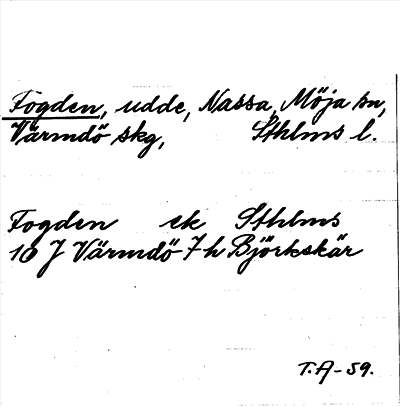 Fogden, udde, Nassa, Möja sn,
Värmdö skg, Sthlms l.
Fogden ek Sthlms
10 J Värmdö 7 h Björkskär
T.A-59.